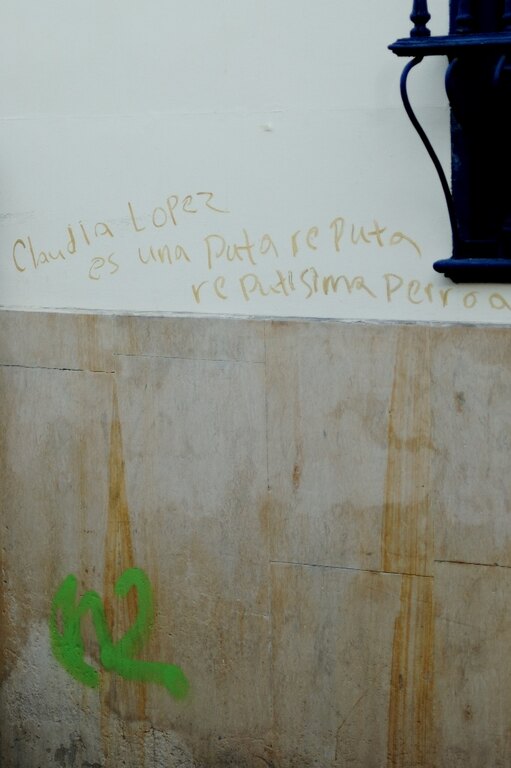 Claudia Lopez
es una puta re puta
re putisima perroa
n2